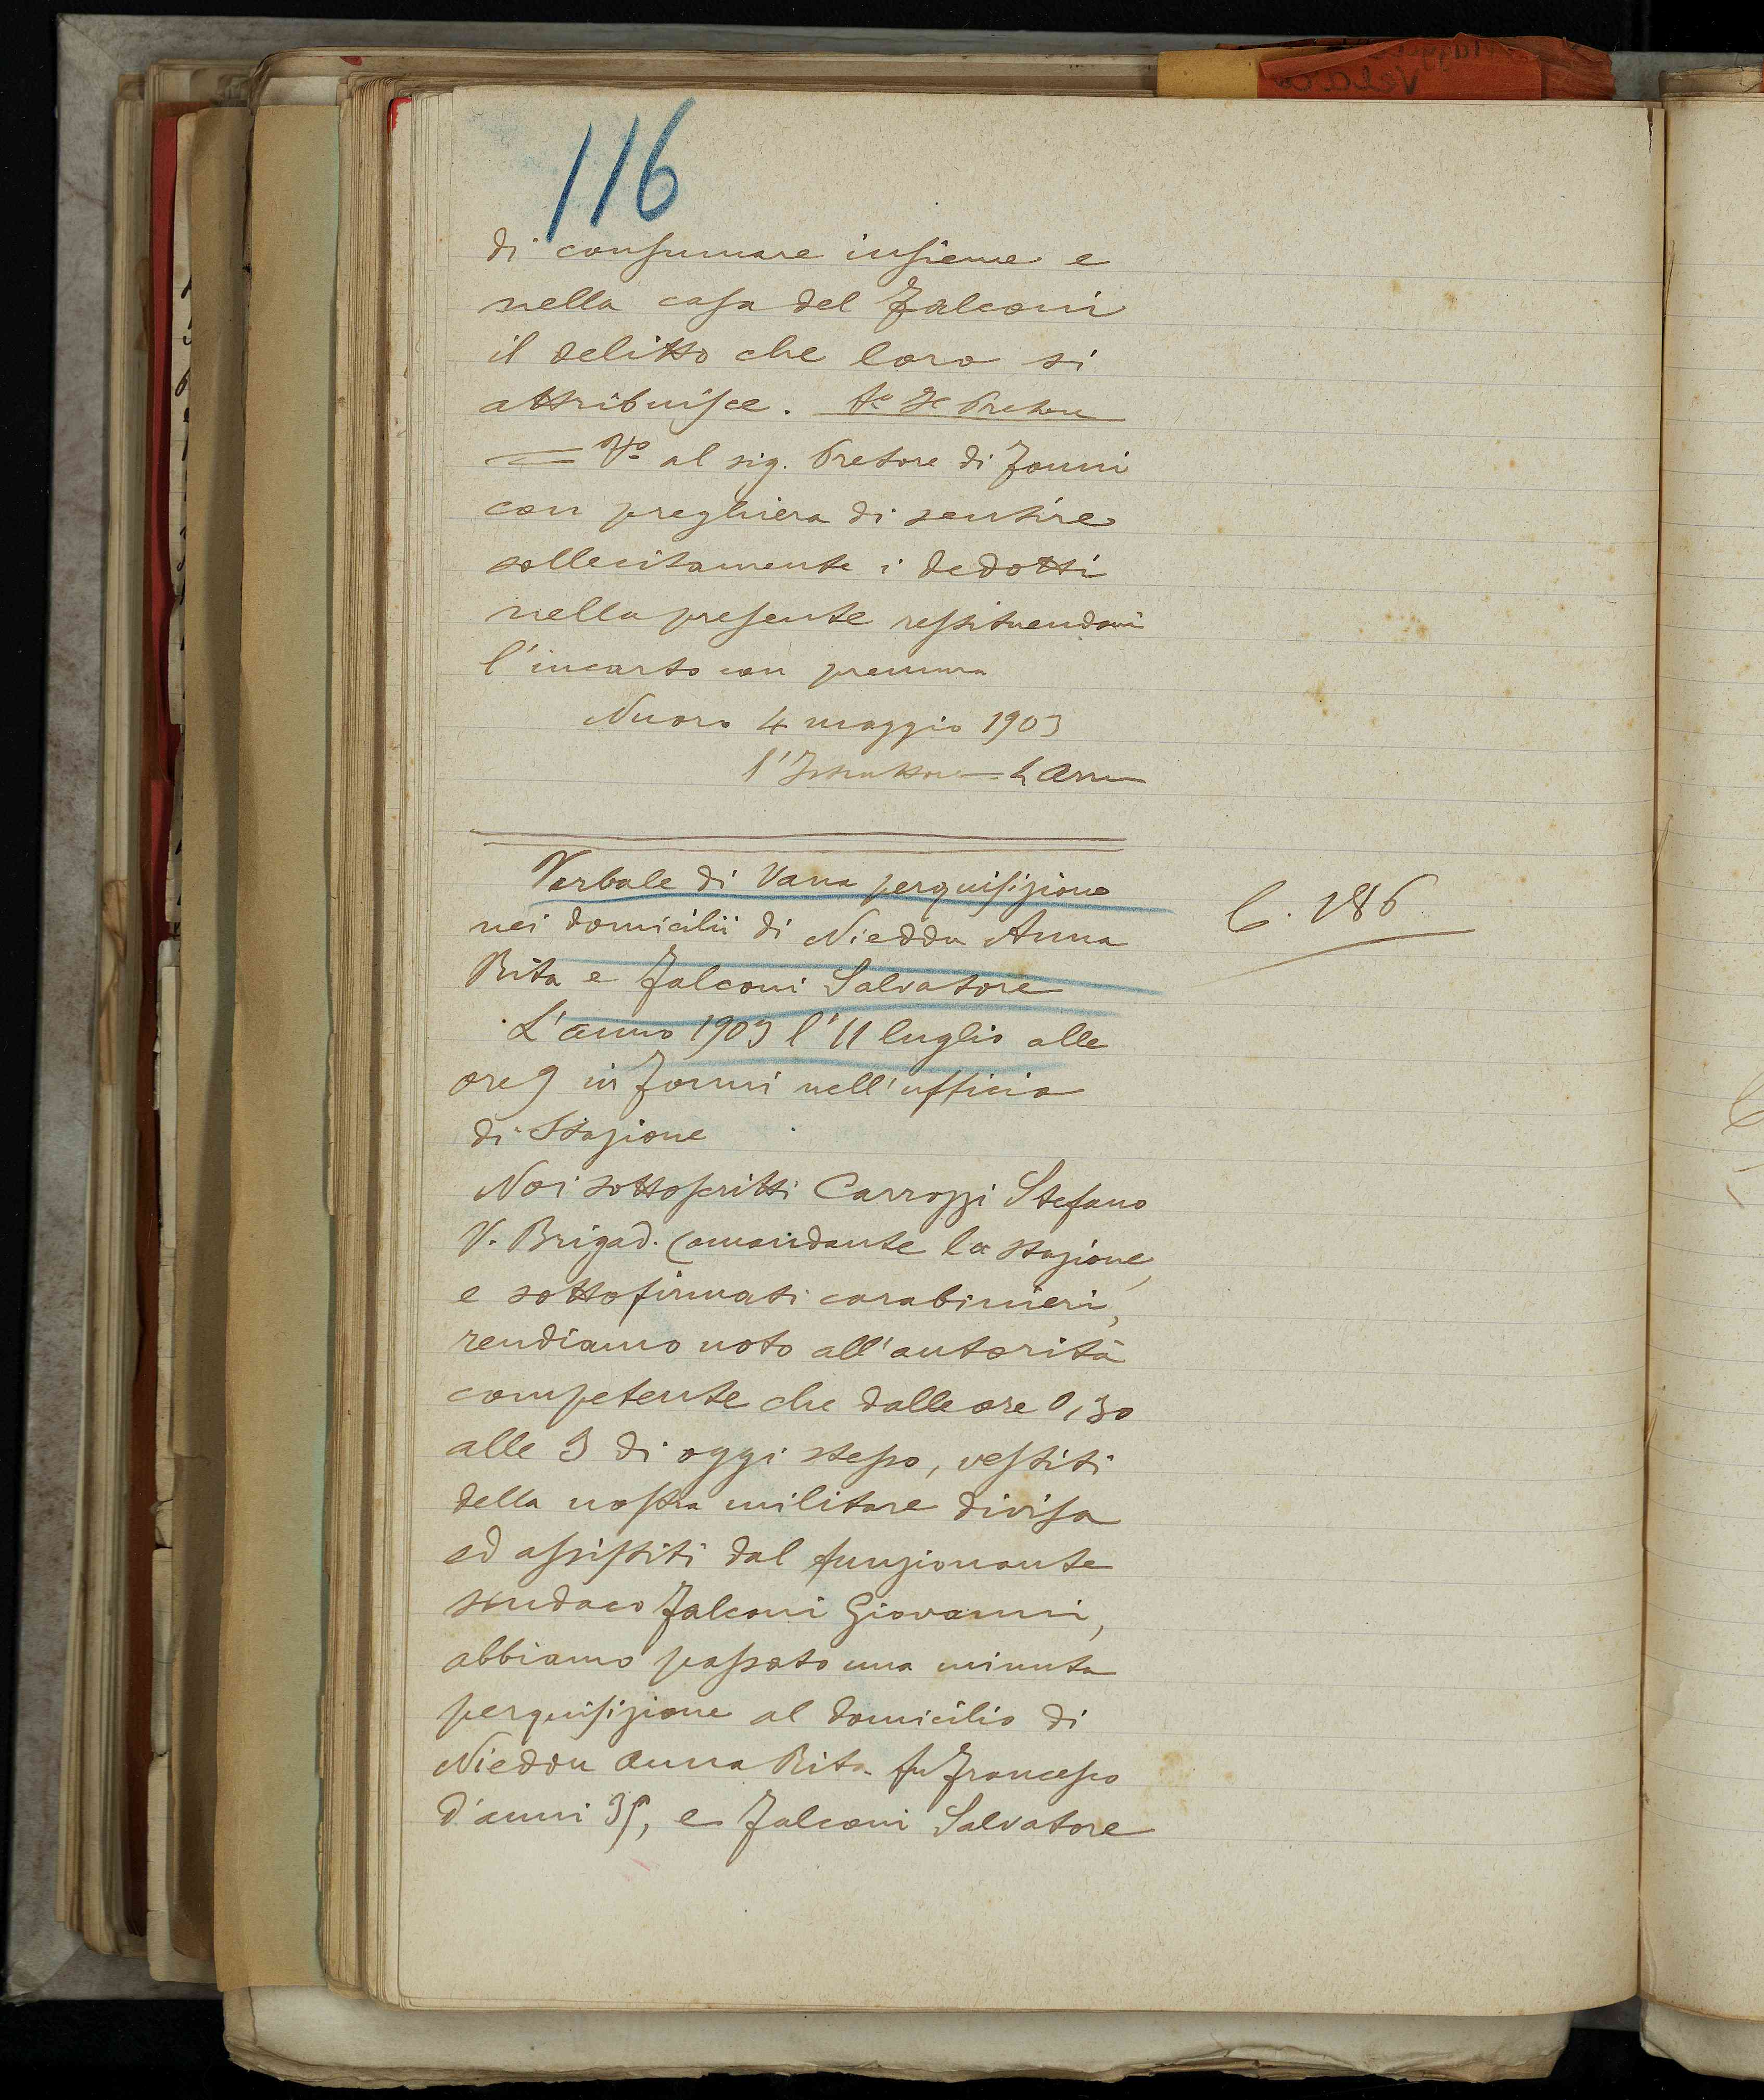 116
di consumare insieme e
nella casa del Falconi
il delitto che loro si
attribuisce.
Vº al sig. Pretore di Fonni
con preghiera di sentire
sollecitamente i dedotti
nella presente restituendomi
l'incarto con premura
Nuoro 4 maggio 1903
l'Istruttore
Verbale di Vana perquisizione
C. 186
nei domicilii di Nieddu Anna
Rita e Falconi Salvatore
L'anno 1903 l'11 luglio alle
ore 9 in Fonni nell'ufficio
di Stazione
Noi sottoscritti Carrozzi Stefano
V. Brigad. Comandante la stazione,
e sottofirmati carabinieri,
rendiamo noto all'autorità
competente che dalle ore 0,30
alle 3 di oggi stesso, vestiti
della nostra militare divisa
ed assistiti dal funzionante
sindaco Falconi Giovanni,
abbiamo passato una minuta
perquisizione al domicilio di
Nieddu Anna Rita fu Francesco
d'anni 35, e Falconi Salvatore